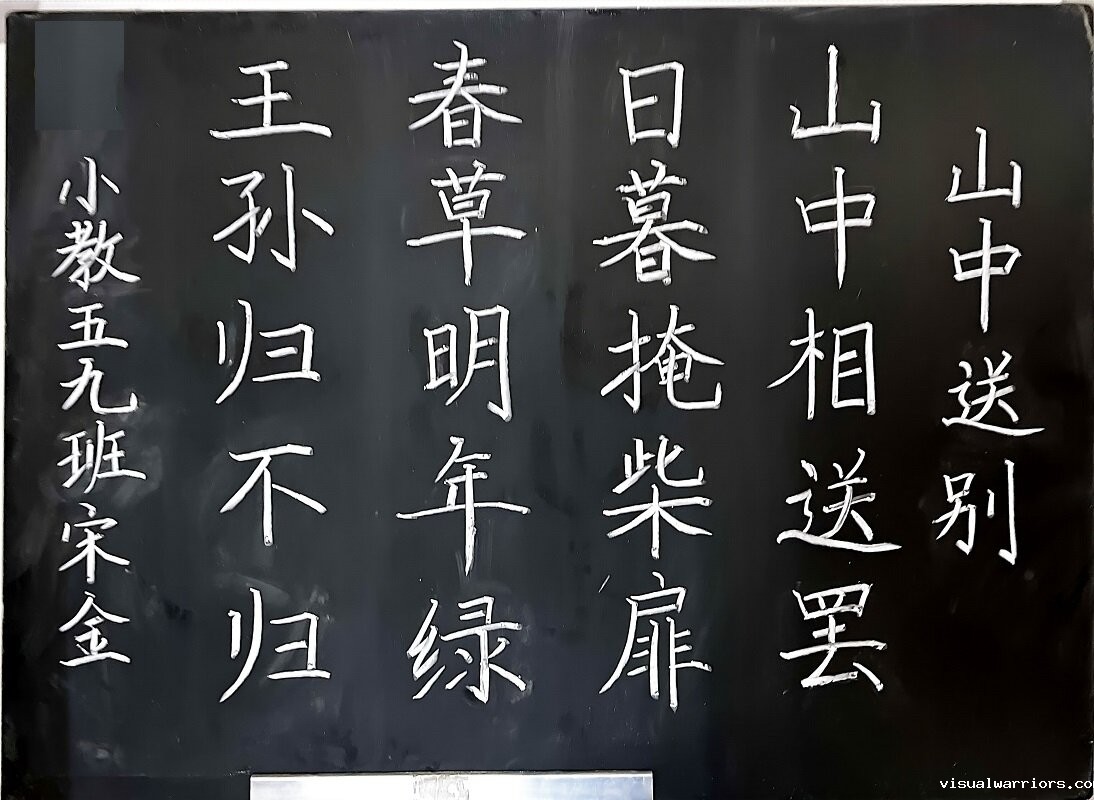 山中送别
山中相送罢
日暮掩柴扉
春草明年绿
王孙归不归
小教五九班宋金
visualwarriors.co